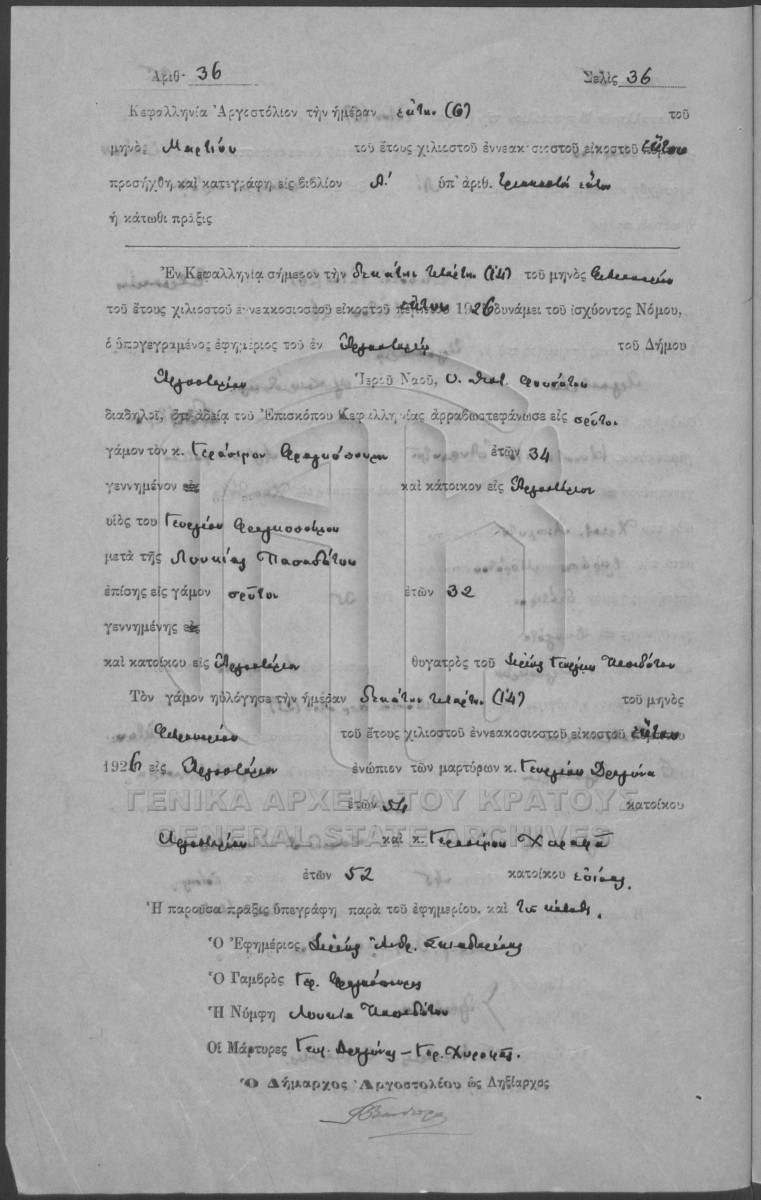 Ἀριθ. 36 Σελὶς 36
Κεφαλληνία Ἀργοστόλιον τὴν ἡμέραν ἕκτην (6) τοῦ
μηνὸς Μαρτίου τοῦ ἔτους χιλιοστοῦ ἐννεακοσιοστοῦ εἰκοστοῦ ἕκτου
προσήχθη καὶ κατεγράφη εἰς βιβλίον Α' ὑπ' ἀριθ. τριακοστὸ ἕκτον
ἡ κάτωθι πρᾶξις
Ἐν Κεφαλληνίᾳ σήμερον τὴν δεκάτην τετάρτην (14) τοῦ μηνὸς Φεβρουαρίου
τοῦ ἔτους χιλιοστοῦ ἐννεακοσιοστοῦ εἰκοστοῦ ἕκτου 1926 δυνάμει τοῦ ἰσχύοντος Νόμου,
ὁ ὑπογεγραμένος ἐφημέριος τοῦ ἐν Ἀργοστολίῳ τοῦ Δήμου
Ἀργοστολίου Ἱεροῦ Ναοῦ,
διαδηλοῖ, ὅτι ἀδείᾳ τοῦ Ἐπισκόπου Κεφαλληνίας ἀρραβωστεφάνωσε εἰς πρῶτον
γάμον τὸν κ. Γεράσιμον Φραγκόπουλον ἐτῶν 34
γεννημένον καὶ κάτοικον εἰς Ἀργοστόλιον
υἱὸς του Γεωργίου Φραγκοπούλου
μετὰ τῆς Λουκίας
ἐπίσης εἰς γάμον πρῶτον ἐτῶν 32
γεννημένης
καὶ κατοίκου εἰς Ἀργοστόλιον θυγατρὸς τοῦ Γεωργίου
Τὸν γάμον ηὐλόγησε τὴν ἡμέραν δεκάτην τετάρτην (14) τοῦ μηνὸς
Φεβρουαρίου τοῦ ἔτους χιλιοστοῦ ἐννεακοσιοστοῦ εἰκοστοῦ ἕκτου
1926 εἰς Ἀργοστόλιον ἐνώπιον τῶν μαρτύρων κ. Γεωργίου
ΓΕΝΙΚΑ ΑΡΧΕΙΑ ΤΟΥ ΚΡΑΤΟΥΣ
ἐτῶν 54 κατοίκου
GENERAL STATE ARCHIVES
Ἀργοστολίου καὶ κ. Γερασίμου Χαρακᾶ
ἐτῶν 52 κατοίκου ἐπίσης.
Ἡ παροῦσα πρᾶξις ὑπεγράφη παρὰ τοῦ ἐφημερίου. καὶ τῶν κάτωθι.
Ὁ Ἐφημέριος
Ὁ Γαμβρὸς Γερ. Φραγκόπουλος
Ἡ Νύμφη Λουκία
Οἱ Μάρτυρες
Ὁ Δήμαρχος Ἀργοστολίου ὡς Ληξίαρχος